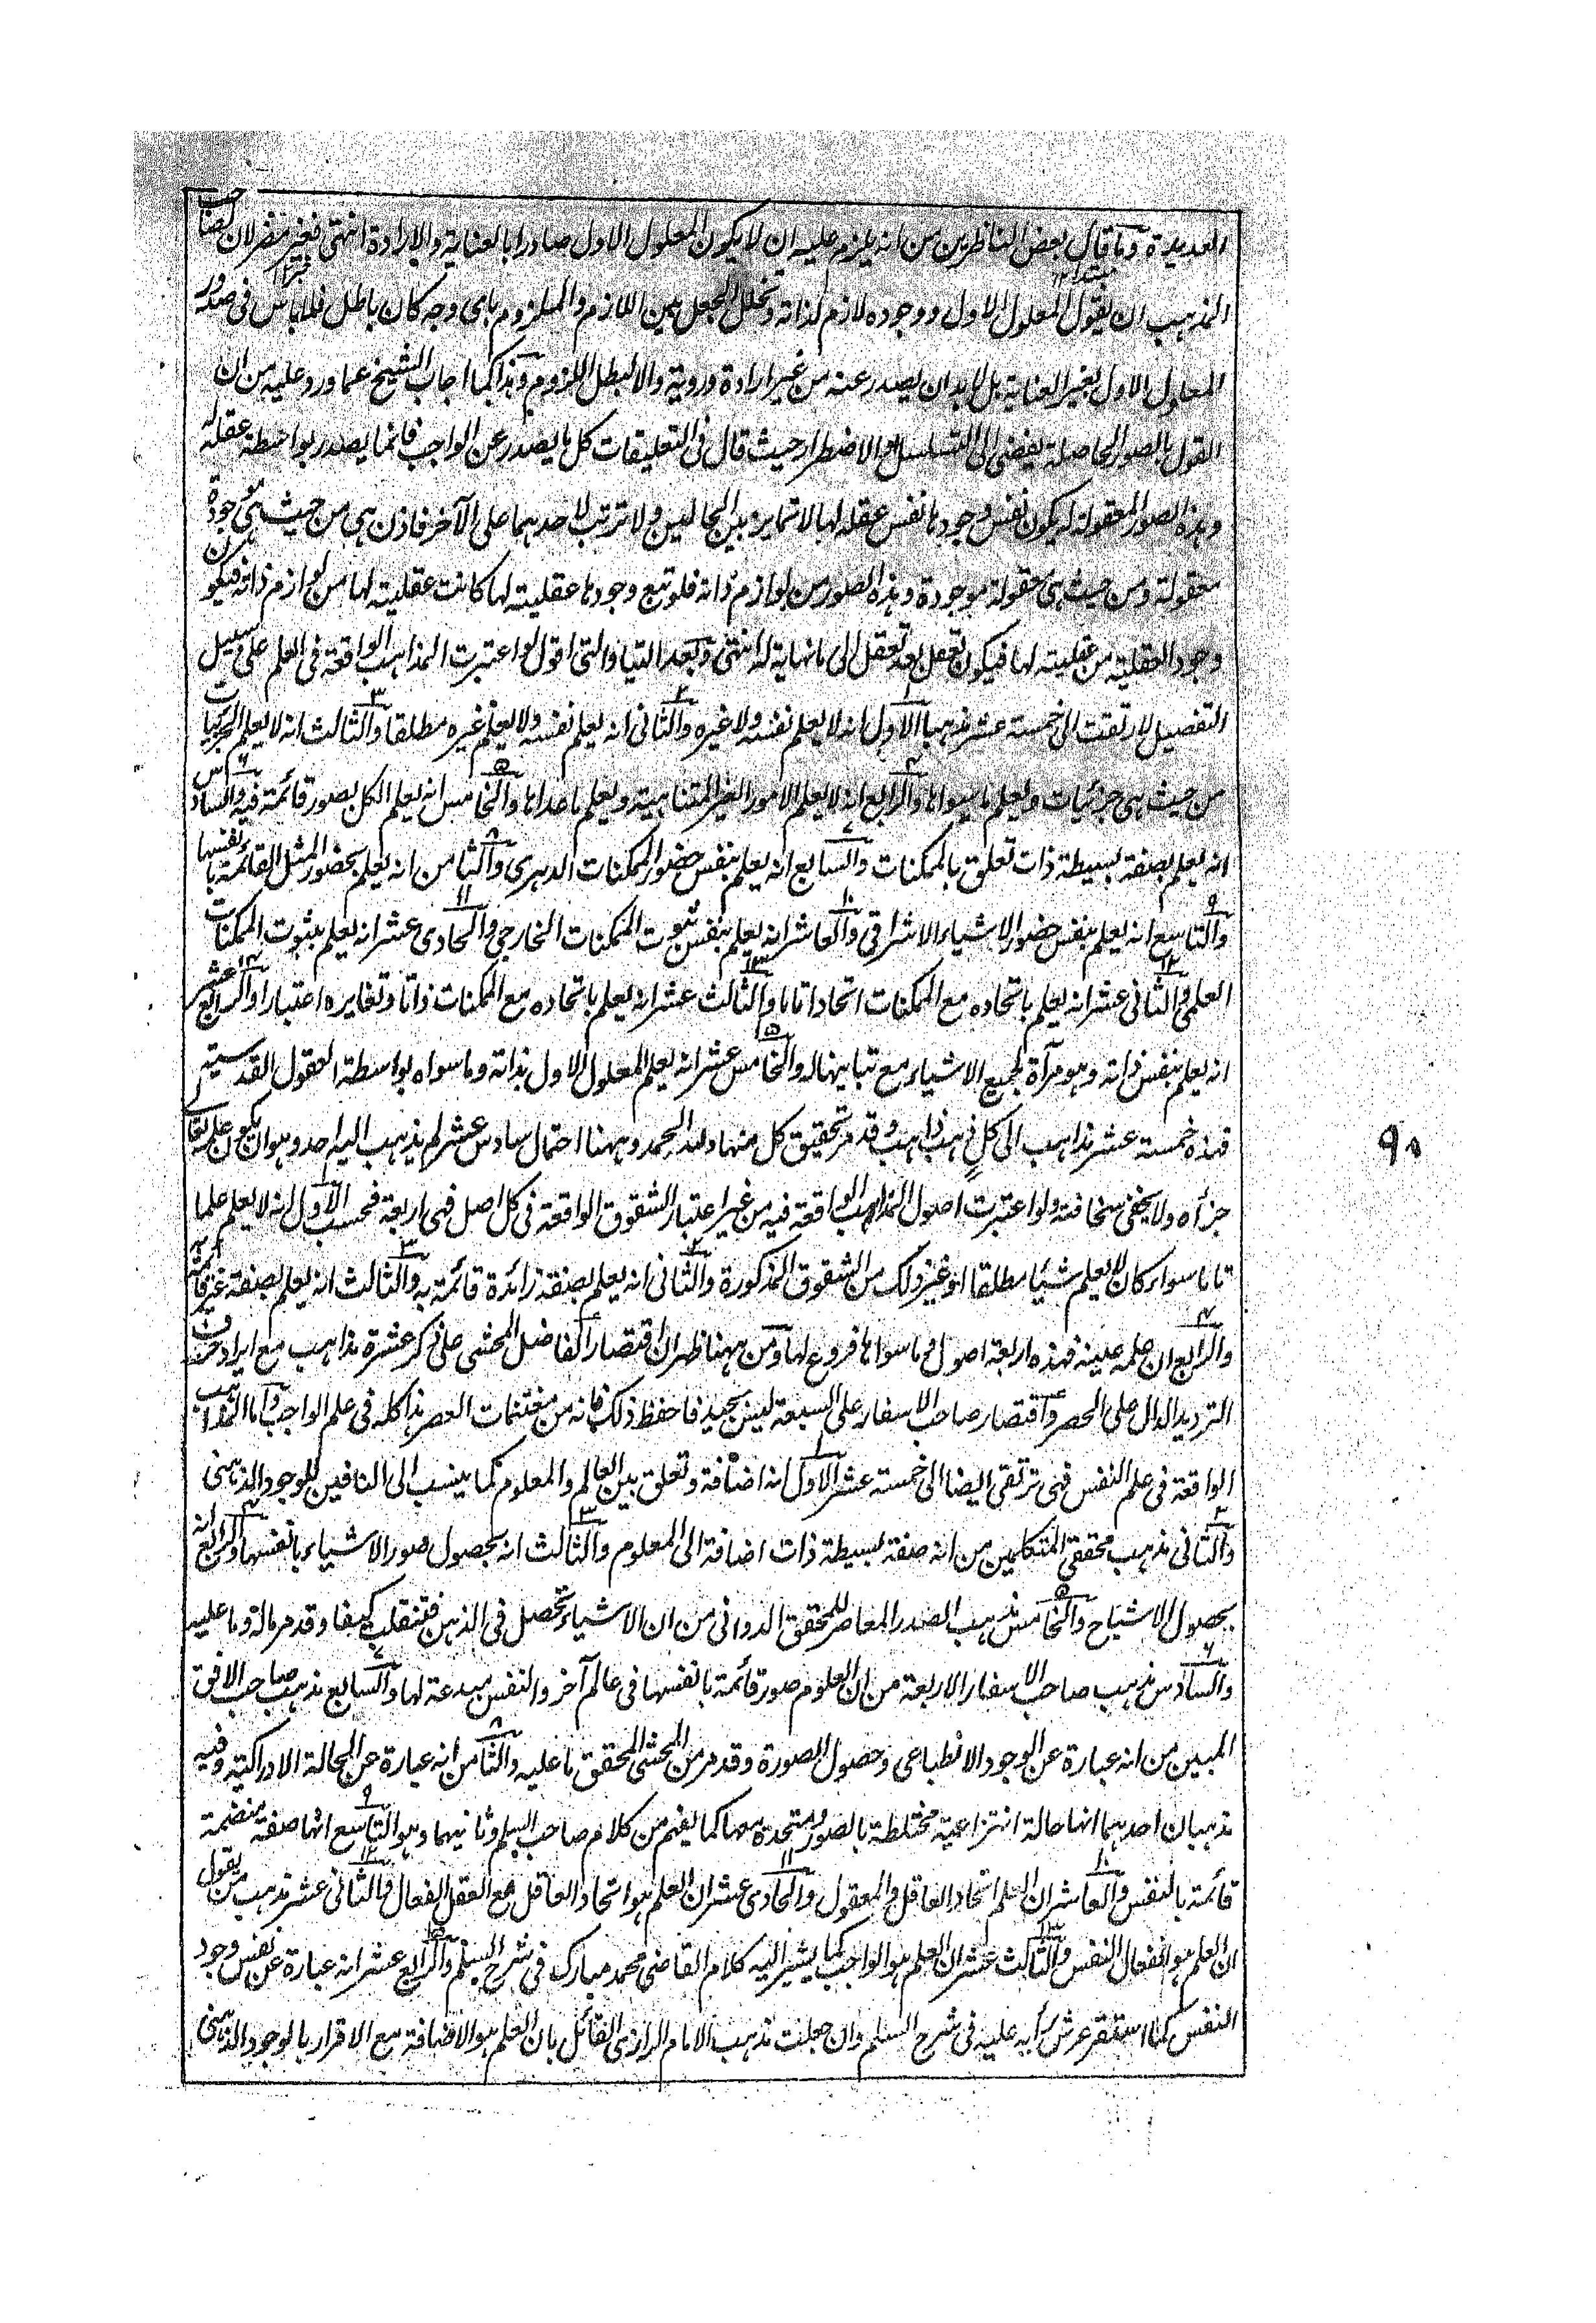 العديدة وما قال بعض الناظرين من انه يلزم عليه ان لا يكون المعلول الاول صادرا بالعناية والارادة انتهى فغير مضر لان لصاحب
المذهب ان يقول المعلول الاول ووجوده لازم لذاته وتخلل الجعل بين اللازم والملزوم باى وجه كان باطل فلا باس فى صدور
المعلول الاول بغير العناية بل لا بد ان يصدر عنه من غير ارادة وروية والا لبطل اللزوم وهذا كما اجاب الشيخ عما ورد عليه من ان
القول بالصور الحاصلة يفضى الى التسلسل او الاضطرار حيث قال فى التعليقات كل ما يصدر عن الواجب فانما يصدر بواسطة عقله له
وهذه الصور المعقولة له يكون نفس وجودها نفس عقله لها لا تمايز بين الحالين ولا ترتب لاحدهما على الآخر فاذن هى من حيث هى موجودة
معقولة ومن حيث هى معقولة موجودة وهذه الصور من لوازم ذاته فلو تبع وجودها عقليته لها كانت عقليته لها من لوازم ذاته فيكون
وجود العقلية من عقليته لها فيكون تعقل بعد تعقل الى ما نهاية له انتهى وبعد اللتيا والتى اقول لو اعتبرت المذاهب الواقعة فى العلم على سبيل
التفصيل لارتقت الى خمسة عشر مذهبا الاول انه لا يعلم نفسه ولا غيره والثانى انه يعلم نفسه ولا يعلم غيره مطلقا والثالث انه لا يعلم الجزئيات
من حيث هى جزئيات ويعلم ما سواها والرابع انه لا يعلم الامور الغير المتناهية ويعلم ما عداها والخامس انه يعلم الكل بصور قائمة فيه والسادس
انه يعلم بصفة بسيطة ذات تعلق بالممكنات والسابع انه يعلم بنفس حضور الممكنات الدهرى والثامن انه يعلم بحضور المثل القائمة بانفسها
والتاسع انه يعلم بنفس حضور الاشياء الاشراقى والعاشر انه يعلم بنفس ثبوت الممكنات الخارجى والحادى عشر انه يعلم بثبوت الممكنات
العلمى والثانى عشر انه يعلم باتحاده مع الممكنات اتحادا تاما والثالث عشر انه يعلم باتحاده مع الممكنات ذاتا وتغايره اعتبارا والرابع عشر
انه يعلم بنفس ذاته وهو مرآة لجميع الاشياء مع تباينها له والخامس عشر انه يعلم المعلول الاول بذاته وما سواه بواسطة العقول القدسية
فهذه خمسة عشر مذاهب الى كل ذهب ذاهب وقد مر تحقيق كل منها ولله الحمد وههنا احتمال سادس عشر لم يذهب اليه احد وهو ان يكون علمه تعالى
جزأه ولا يخفى سخافته ولو اعتبرت اصول المذاهب الواقعة فيه من غير اعتبار الشقوق الواقعة فى كل اصل فهى اربعة فحسب الاول انه لا يعلم علما
تاما سواء كان لا يعلم شيئا مطلقا او غير ذلك من الشقوق المذكورة والثانى انه يعلم بصفة زائدة قائمة به والثالث انه يعلم بصفة غير قائمة
والرابع ان علمه عينه فهذه اربعة اصول وما سواها فروع لها ومن ههنا ظهر ان اقتصار الفاضل المحشى على ذكر عشرة مذاهب مع ايراد حرف
الترديد الدال على الحصر واقتصار صاحب الاسفار على السبعة ليس بجيد فاحفظ ذلك فانه من مغتنمات العصر هذا كله فى علم الواجب واما المذاهب
الواقعة فى علم النفس فهى ترتقى ايضا الى خمسة عشر الاول انه اضافة وتعلق بين العالم والمعلوم كما ينسب الى النافين للوجود الذهنى
والثانى مذهب محققى المتكلمين من انه صفة بسيطة ذات اضافة الى المعلوم والثالث انه بحصول صور الاشياء بانفسها والرابع انه
بحصول الاشباح والخامس مذهب الصدر المعاصر للمحقق الدوانى من ان الاشياء تحصل فى الذهن فتنقلب كيفا وقد مر ماله وما عليه
والسادس مذهب صاحب الاسفار الاربعة من ان العلوم صور قائمة بانفسها فى عالم آخر والنفس مبدعة لها والسابع مذهب صاحب الافق
المبين من انه عبارة عن الوجود الانطباعى وحصول الصورة وقد مر من المحشى المحقق ما عليه والثامن انه عبارة عن الحالة الادراكية وفيه
مذهبان احدهما انها حالة انتزاعية مختلطة بالصور ومتحدة معها كما يفهم من كلام صاحب السلم وثانيهما وهو التاسع انها صفة منضمة
قائمة بالنفس والعاشر ان العلم اتحاد العاقل والمعقول والحادى عشر ان العلم هو اتحاد العاقل مع العقل الفعال والثانى عشر مذهب من يقول
ان العلم هو انفعال النفس والثالث عشر ان العلم هو الواجب كما يشير اليه كلام القاضى محمد مبارك فى شرح السلم والرابع عشر انه عبارة عن نفس وجود
النفس كما استقر عرش رأيه عليه فى شرح السلم وان جعلت مذهب الامام الرازى القائل بان العلم هو الاضافة مع الاقرار بالوجود الذهنى
٩٥